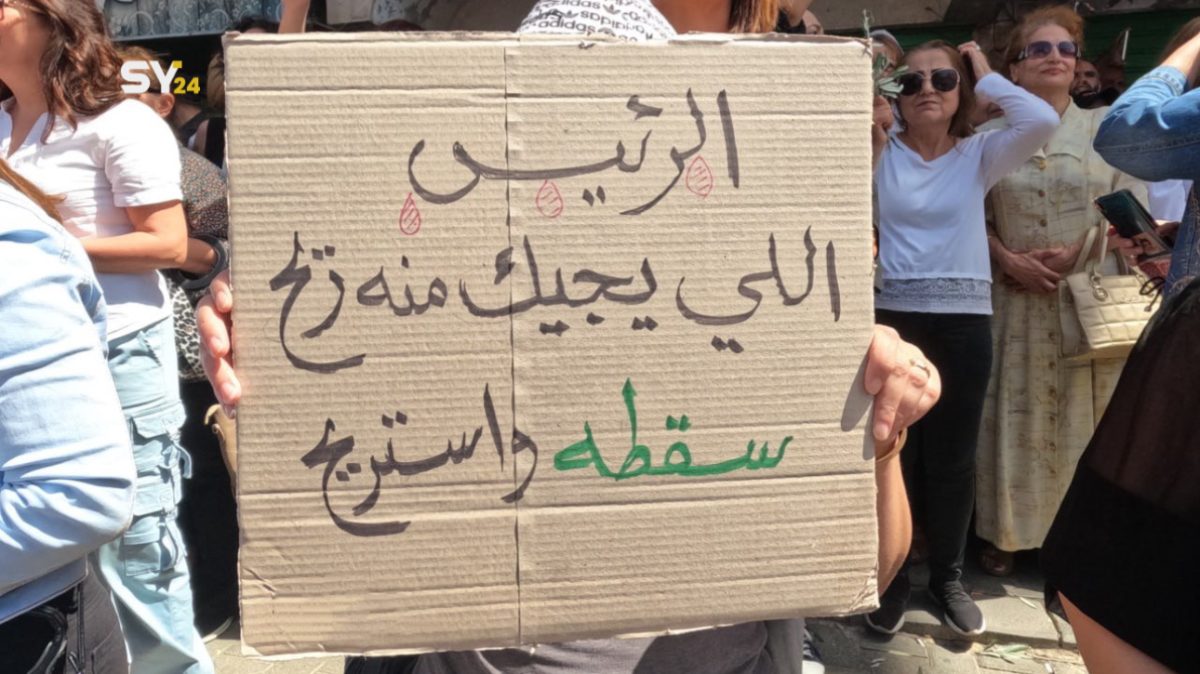 SY24
adidas
الرئيس
اللي يجيك منه ريح
سقطه واستريح